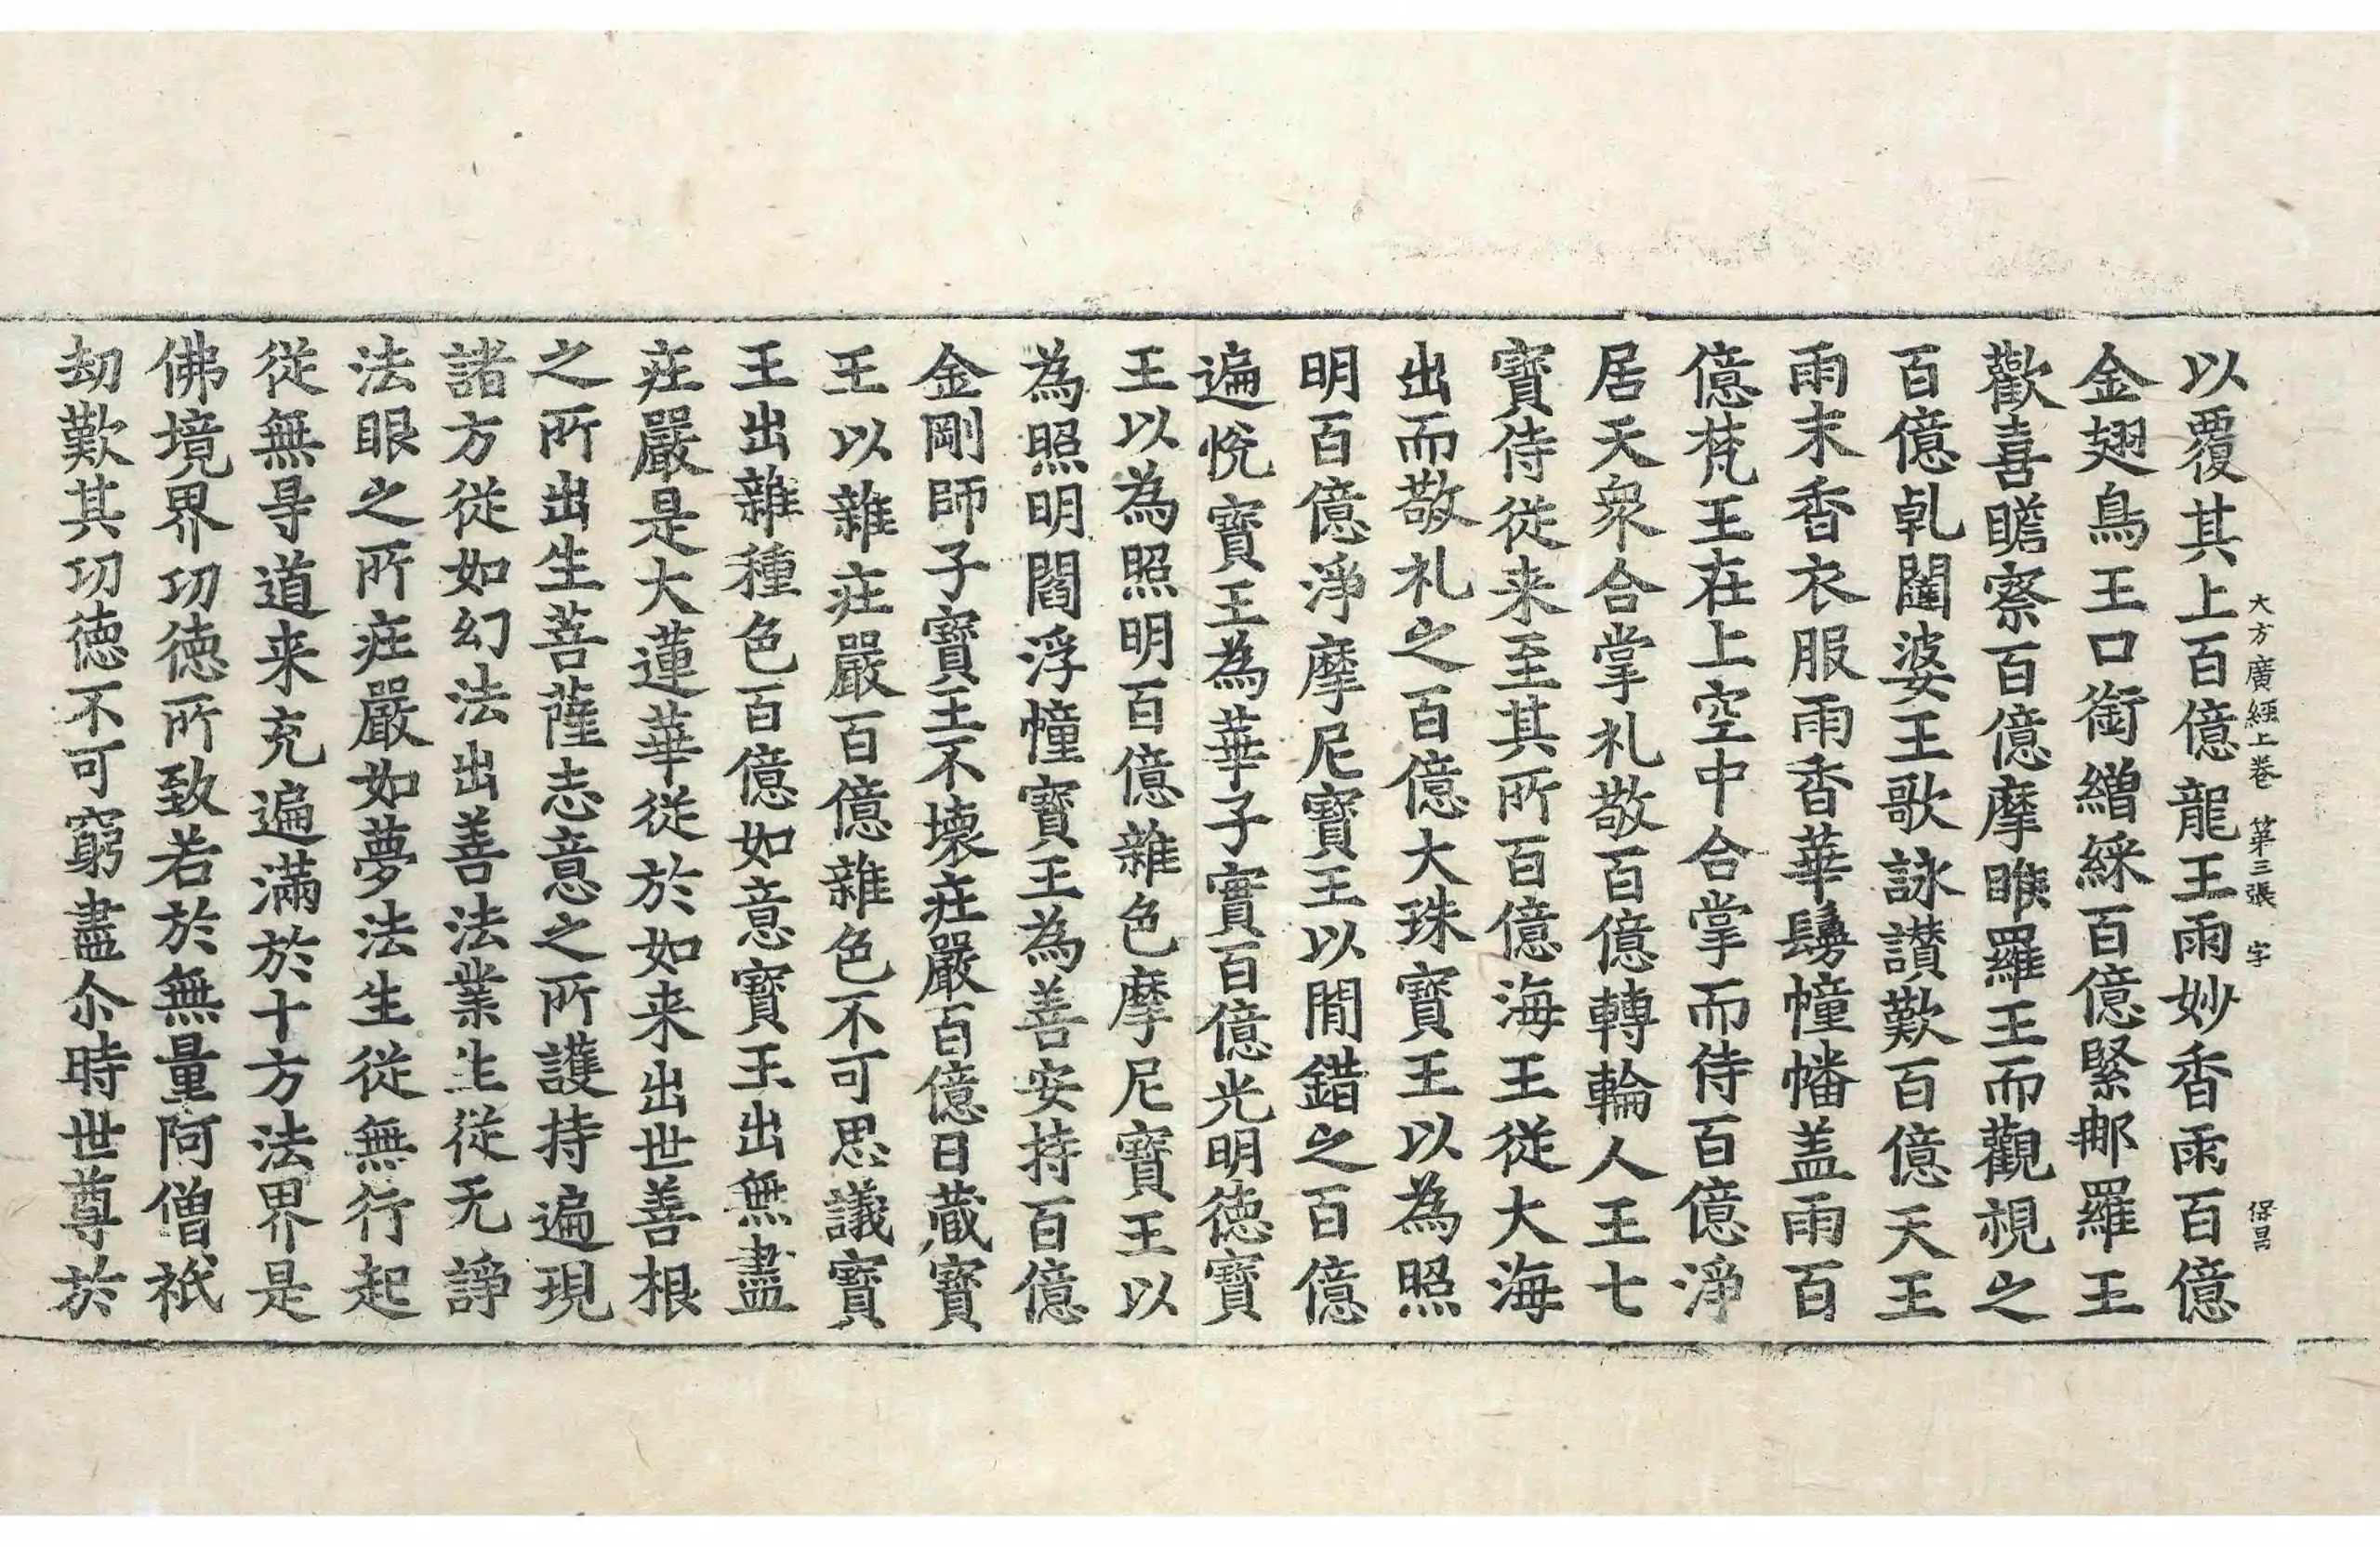 大方廣経上卷 第三張 字 保昌
以覆其上百億龍王雨妙香雨百億
金翅鳥王口銜繒綵百億緊那羅王
歡喜瞻察百億摩睺羅王而觀視之
百億乹闥婆王歌詠讃歎百億天王
雨末香衣服雨香華鬘幢幡盖雨百
億梵王在上空中合掌而侍百億淨
居天衆合掌礼敬百億轉輪人王七
寶侍從来至其所百億海王從大海
出而敬礼之百億大珠寶王以為照
明百億淨摩尼寶王以閒錯之百億
遍悅寶王為華子實百億光明徳寶
王以為照明百億雜色摩尼寶王以
為照明閻浮幢寶王為善安持百億
金剛師子寶王不壊莊嚴百億日蔵寶
王以雜莊嚴百億雜色不可思議寶
王出雜種色百億如意寶王出無盡
莊嚴是大蓮華從於如来出世善根
之所出生菩薩志意之所護持遍現
諸方從如幻法出善法業生從无諍
法眼之所莊嚴如夢法生從無行起
從無㝵道来充遍滿於十方法界是
佛境界功徳所致若於無量阿僧祇
劫歎其功徳不可窮盡尒時世尊於